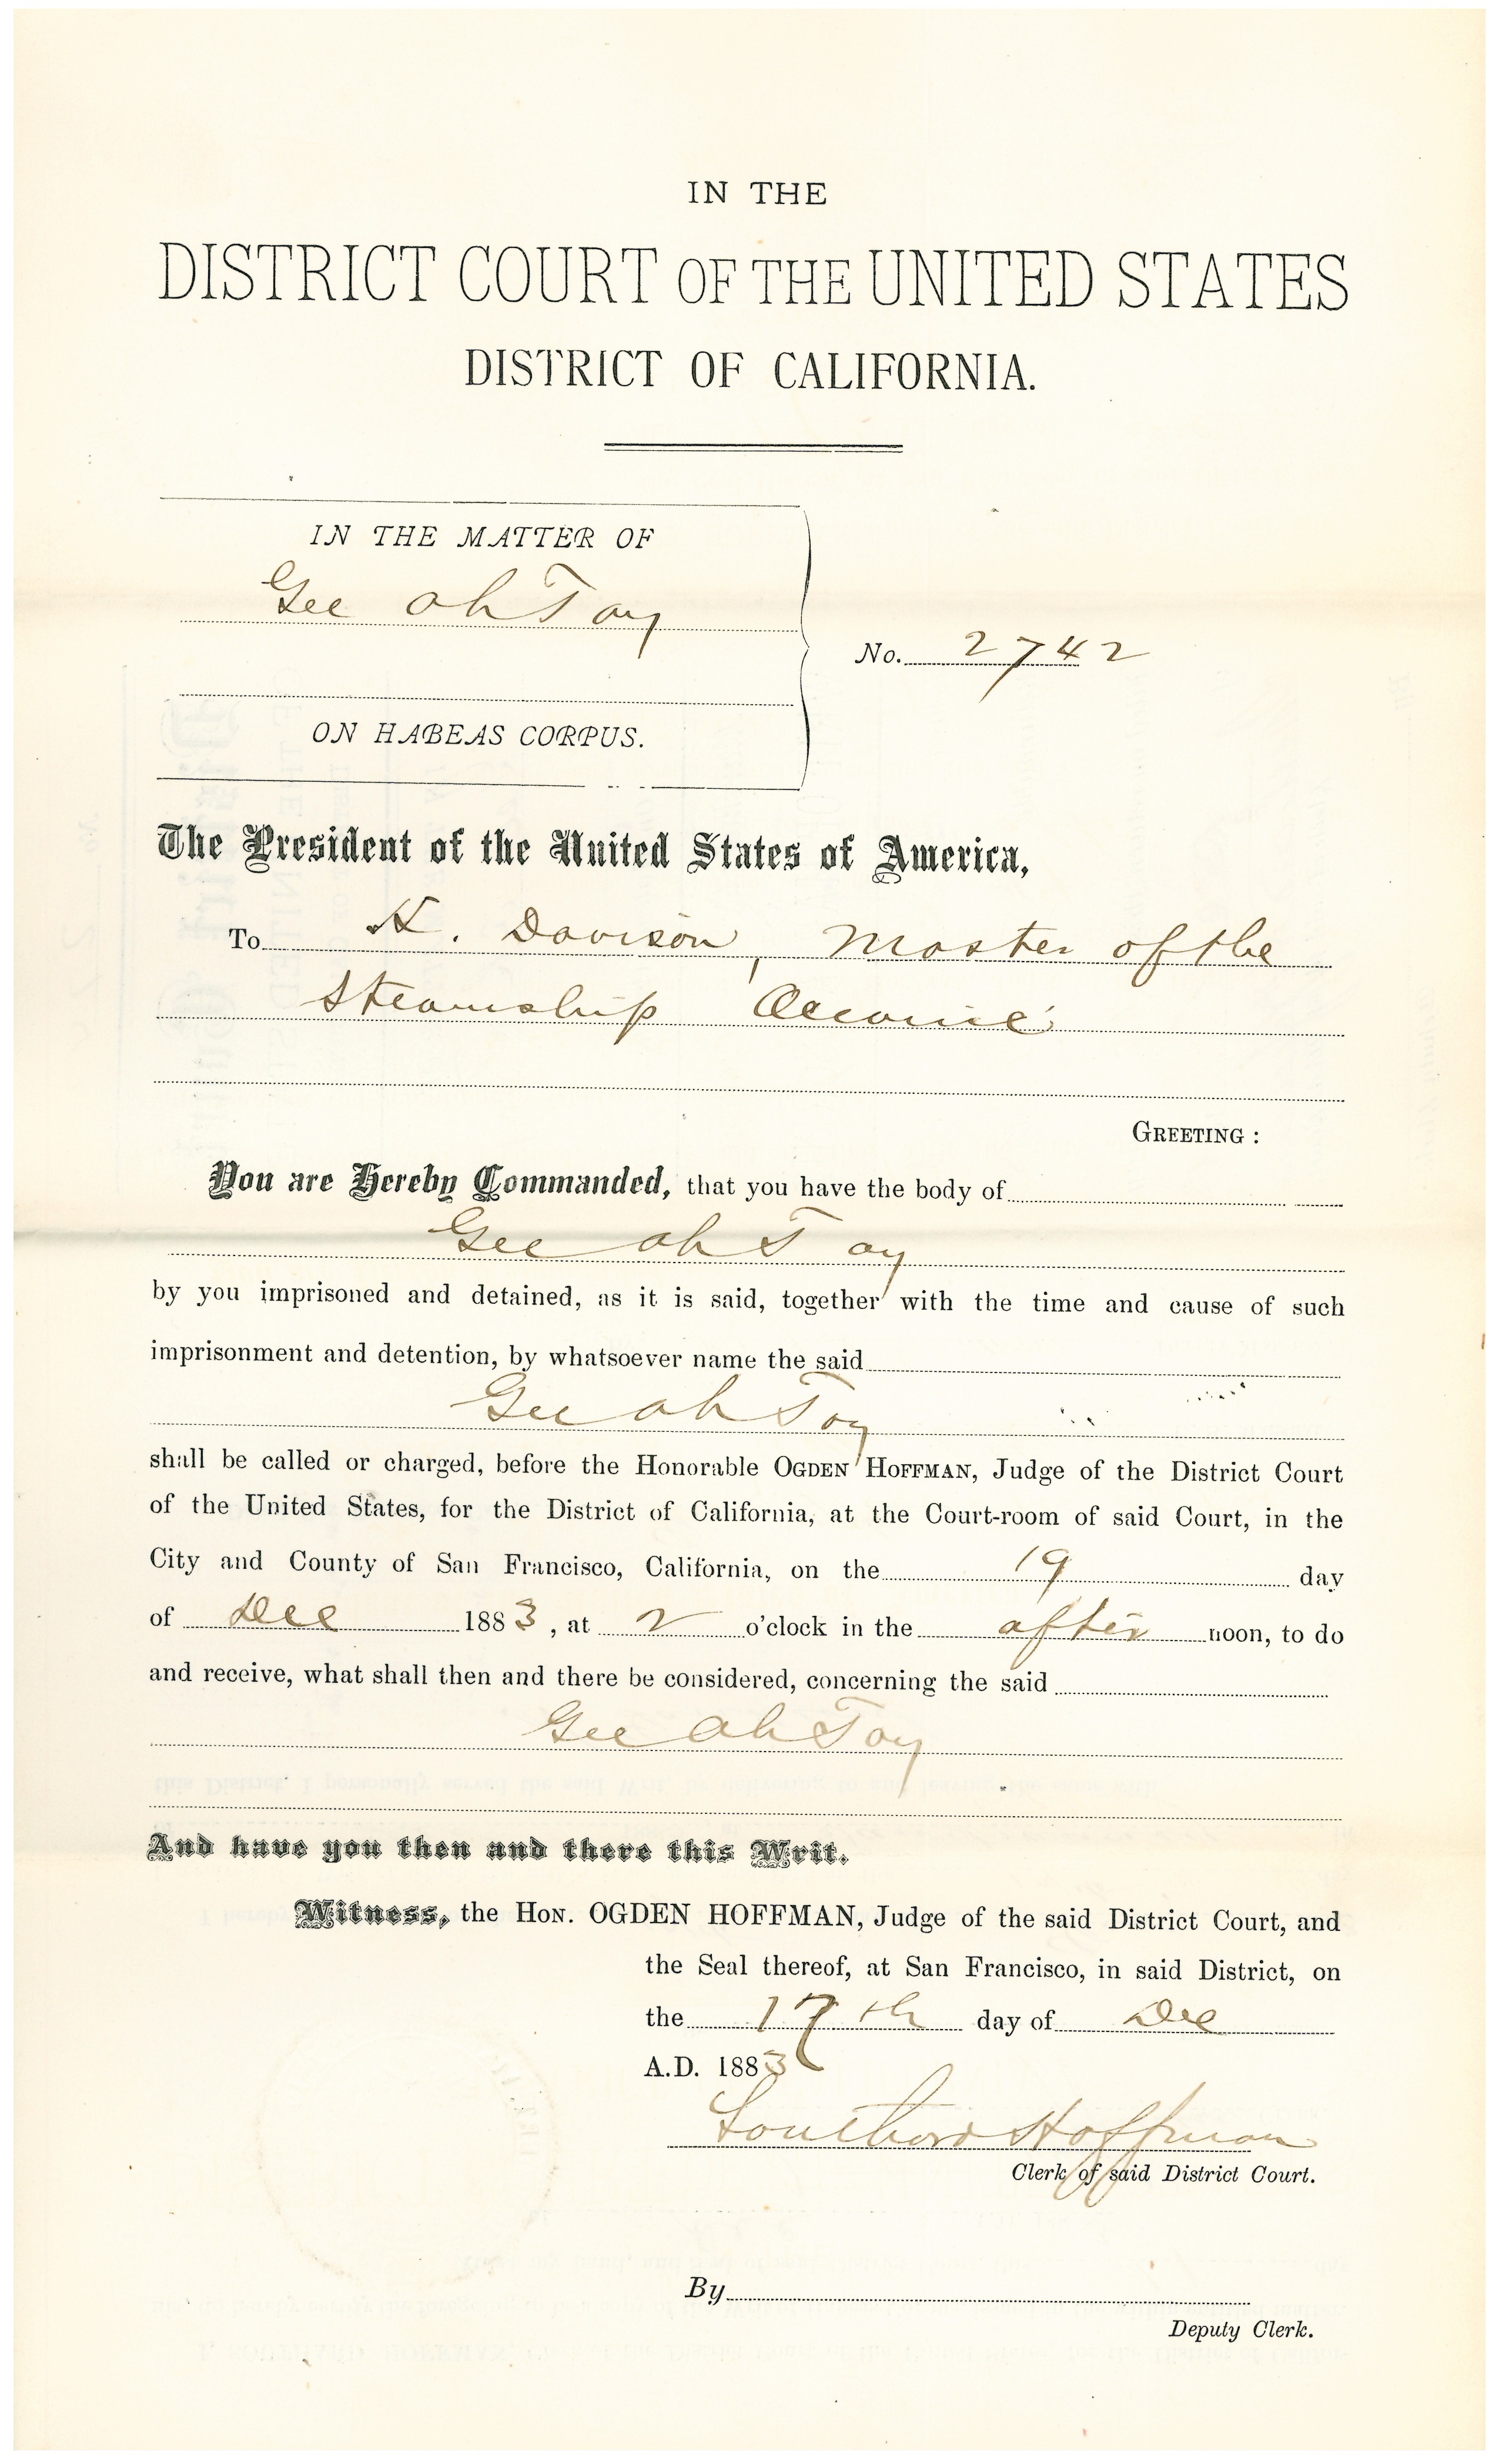 IN THE
DISTRICT COURT OF THE UNITED STATES
DISTRICT OF CALIFORNIA.
IN THE MATTER OF
Gee Ah Toy
No. 2742
ON HABEAS CORPUS.
The President of the United States of America,
To H. Davison, Master of the
Steamship Oceanic
GREETING :
You are Hereby Commanded, that you have the body of
Gee Ah Toy
by you imprisoned and detained, as it is said, together with the time and cause of such
imprisonment and detention, by whatsoever name the said
Gee Ah Toy
shall be called or charged, before the Honorable OGDEN HOFFMAN, Judge of the District Court
of the United States, for the District of California, at the Court-room of said Court, in the
City and County of San Francisco, California, on the 19 day
of Dec 1883, at 2 o'clock in the after noon, to do
and receive, what shall then and there be considered, concerning the said
Gee Ah Toy
And have you then and there this Writ.
Witness, the HON. OGDEN HOFFMAN, Judge of the said District Court, and
the Seal thereof, at San Francisco, in said District, on
the 17th day of Dec
A.D. 1883
Southard Hoffman
Clerk of said District Court.
By
Deputy Clerk.